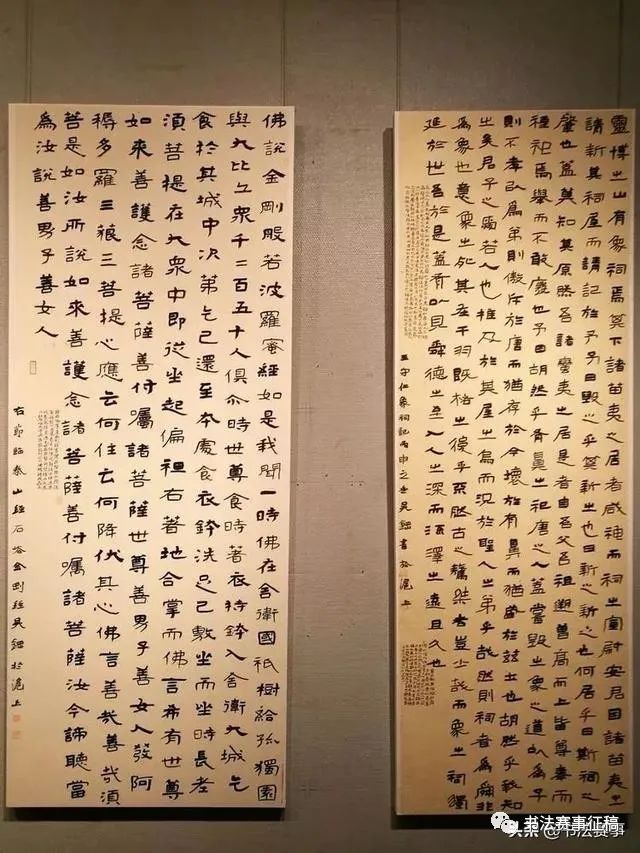 靈博之山有象祠焉其下諸苗夷之居者咸神而祠之宣慰安君因諸苗夷之
請新其祠屋而請記於予予曰毀之乎其新之也曰新之新之也何居乎曰斯祠之
肇也蓋莫知其原然吾諸蠻夷之居是者自吾父吾祖遡曾高而上皆尊奉而
禋祀焉舉而不敢廢也予曰胡然乎有鼻之祀唐之人蓋嘗毀之象之道以為子
則不孝以為弟則傲斥於唐而猶存於今壞於有鼻而猶盛於茲土也胡然乎我知
之矣君子之愛若人也推及於其屋之烏而況於聖人之弟乎哉然則祠者為舜非
為象也意象之死其在干羽既格之後乎不然古之驁桀者豈少哉而象之祠獨
延於世吾於是蓋有以見舜德之至入人之深而流澤之遠且久也
王守仁象祠記丙申之冬吳書於滬上
佛說金剛般若波羅蜜經如是我聞一時佛在舍衛國祇樹給孤獨園
與大比丘眾千二百五十人俱尒時世尊食時著衣持鉢入舍衛大城乞
食於其城中次第乞已還至本處食衣鉢洗足已敷坐而坐時長老
須菩提在大眾中即從坐起偏袒右著地合掌而佛言希有世尊
如來善護念諸菩薩善付囑諸菩薩世尊善男子善女人發阿
耨多羅三藐三菩提心應云何住云何降伏其心佛言善哉善哉須
菩是如汝所說如來善護念諸菩薩善付囑諸菩薩汝今諦聽當
為汝說善男子善女人
右節臨泰山經石峪金剛經吳於滬上
书法赛事征稿
头条@书法赛事